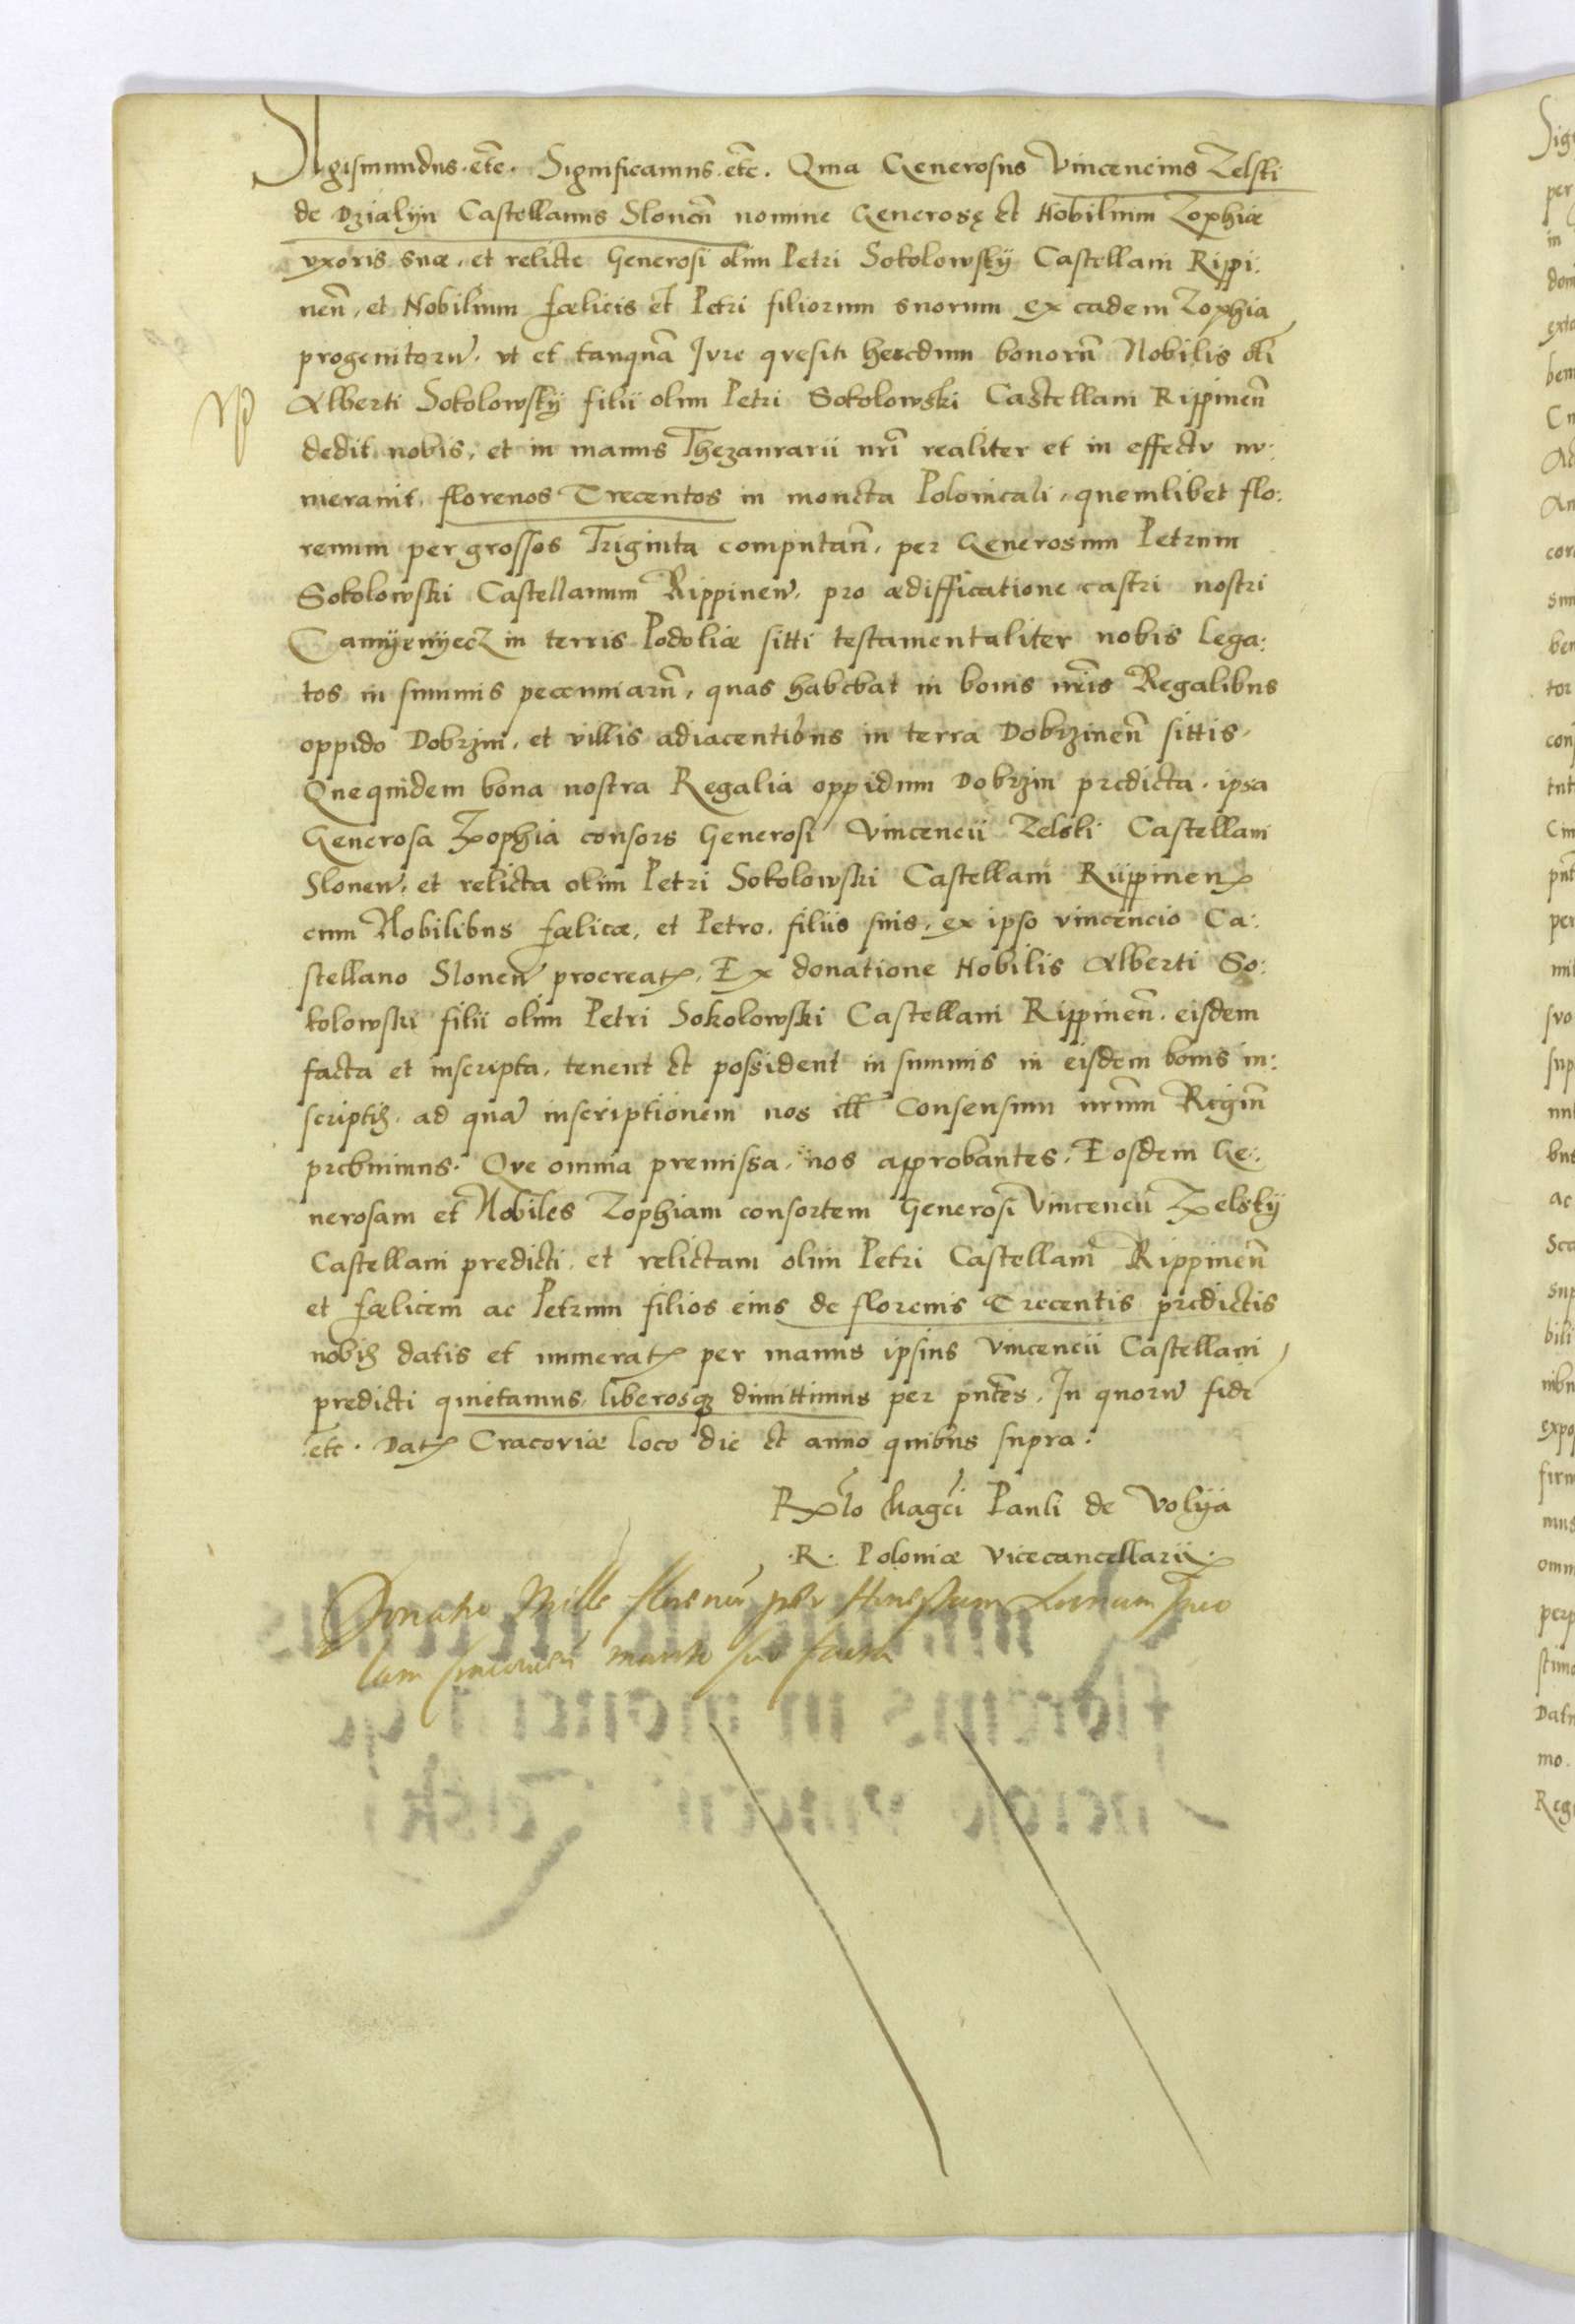 Sigismundus . etc̃ . Significamus . etc̃ . Quia Generosus Vincencius Zelski
de Dzialÿn Castellanus Slonen̄ nomine Generosę et Nobilium Zophiæ
vxoris suæ , et relicte Generosi olim Petri Sokolowskÿ Castellani Rippi:
nen̄ , et Nobilium fœlicis et Petri filiorum suorum ex eadem Zophia
progenitorū . vt et tanquā Jvre qvesiti heredum bonorū Nobilis oli
Alberti Sokolowskÿ filii olim Petri Sokolowski Castellani Rippinen̄
dedit nobis , et in manus Thezaurarii nr̄i realiter et in effectv nv:
meravit , florenos Trecentos in moneta Polonicali , quemlibet flo:
renum per grossos Triginta computan̄ , per Generosum Petrum
Sokolowski Castellanum Rippinen̄ , pro ædifficatione castri nostri
Camÿenÿecz in terris Podoliæ sitti testamentaliter nobis lega:
tos in summis pecuniarū , quas habebat in bonis nr̄is Regalibus
oppido Dobrzin , et villis adiacentibus in terra Dobrzinen̄ sittis ,
Quequidem bona nostra Regalia oppidum Dobrzin predicta . ipsa
Generosa Zophia consors Generosi Vincencii Zelski Castellani
Slonen̄ , et relicta olim Petri Sokolowski Castellani Riippinen̄
cum Nobilibus fœlice , et Petro . filiis suis , ex ipso vincencio Ca:
stellano Slonen̄ procreat̄ , Ex donatione Nobilis Alberti So:
kolowski filii olim Petri Sokolowski Castellani Rippinen̄ . eisdem
facta et inscripta , tenent et possident in summis in eisdem bonis in:
scriptis . ad quā inscriptionem nos ill̄ Consensum nr̄um Regiū
prebuimus . Qve omnia premissa , nos approbantes , Eosdem Ge:
nerosam et Nobiles Zophiam consortem Generosi Vincencii Zelskÿ
Castellani predicti , et relictam olim Petri Castellani Rippinen̄
et fœlicem ac Petrum filios eius de florenis Trecentis predictis
nobis datis et numerat̄ per manus ipsius Vincencii Castellani
predicti quietamus , liberosq3 dimittimus per pn̄tes , In quorū fide
etc . Dat̄ Cracoviæ loco die et anno quibus supra :
Rel̄o Maḡci Pauli de Volÿa
. R . Poloniæ Vicecancellarii .
Donatio Mille florenū per